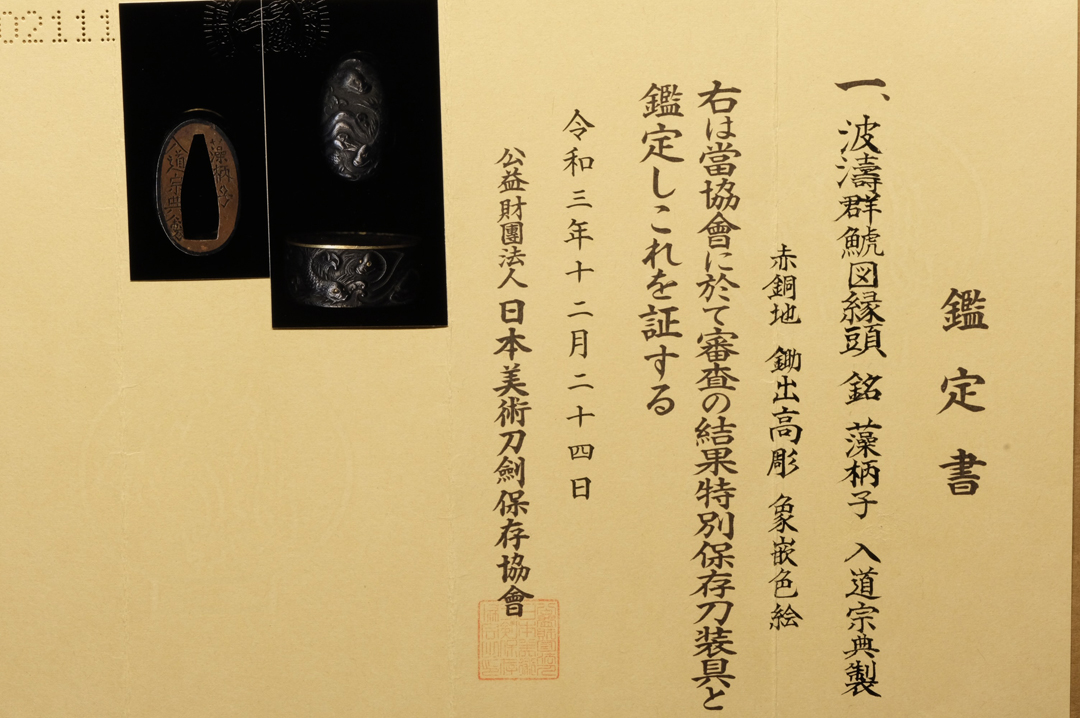 鑑定書
一、波濤群鯱図縁頭 銘 藻柄子 入道宗典製
赤銅地 鋤出高彫 象嵌色絵
右は當協會に於て審査の結果特別保存刀装具と
鑑定しこれを証する
令和三年十二月二十四日
公益財團法人 日本美術刀劍保存協會
02111
藻柄子
入道宗典製